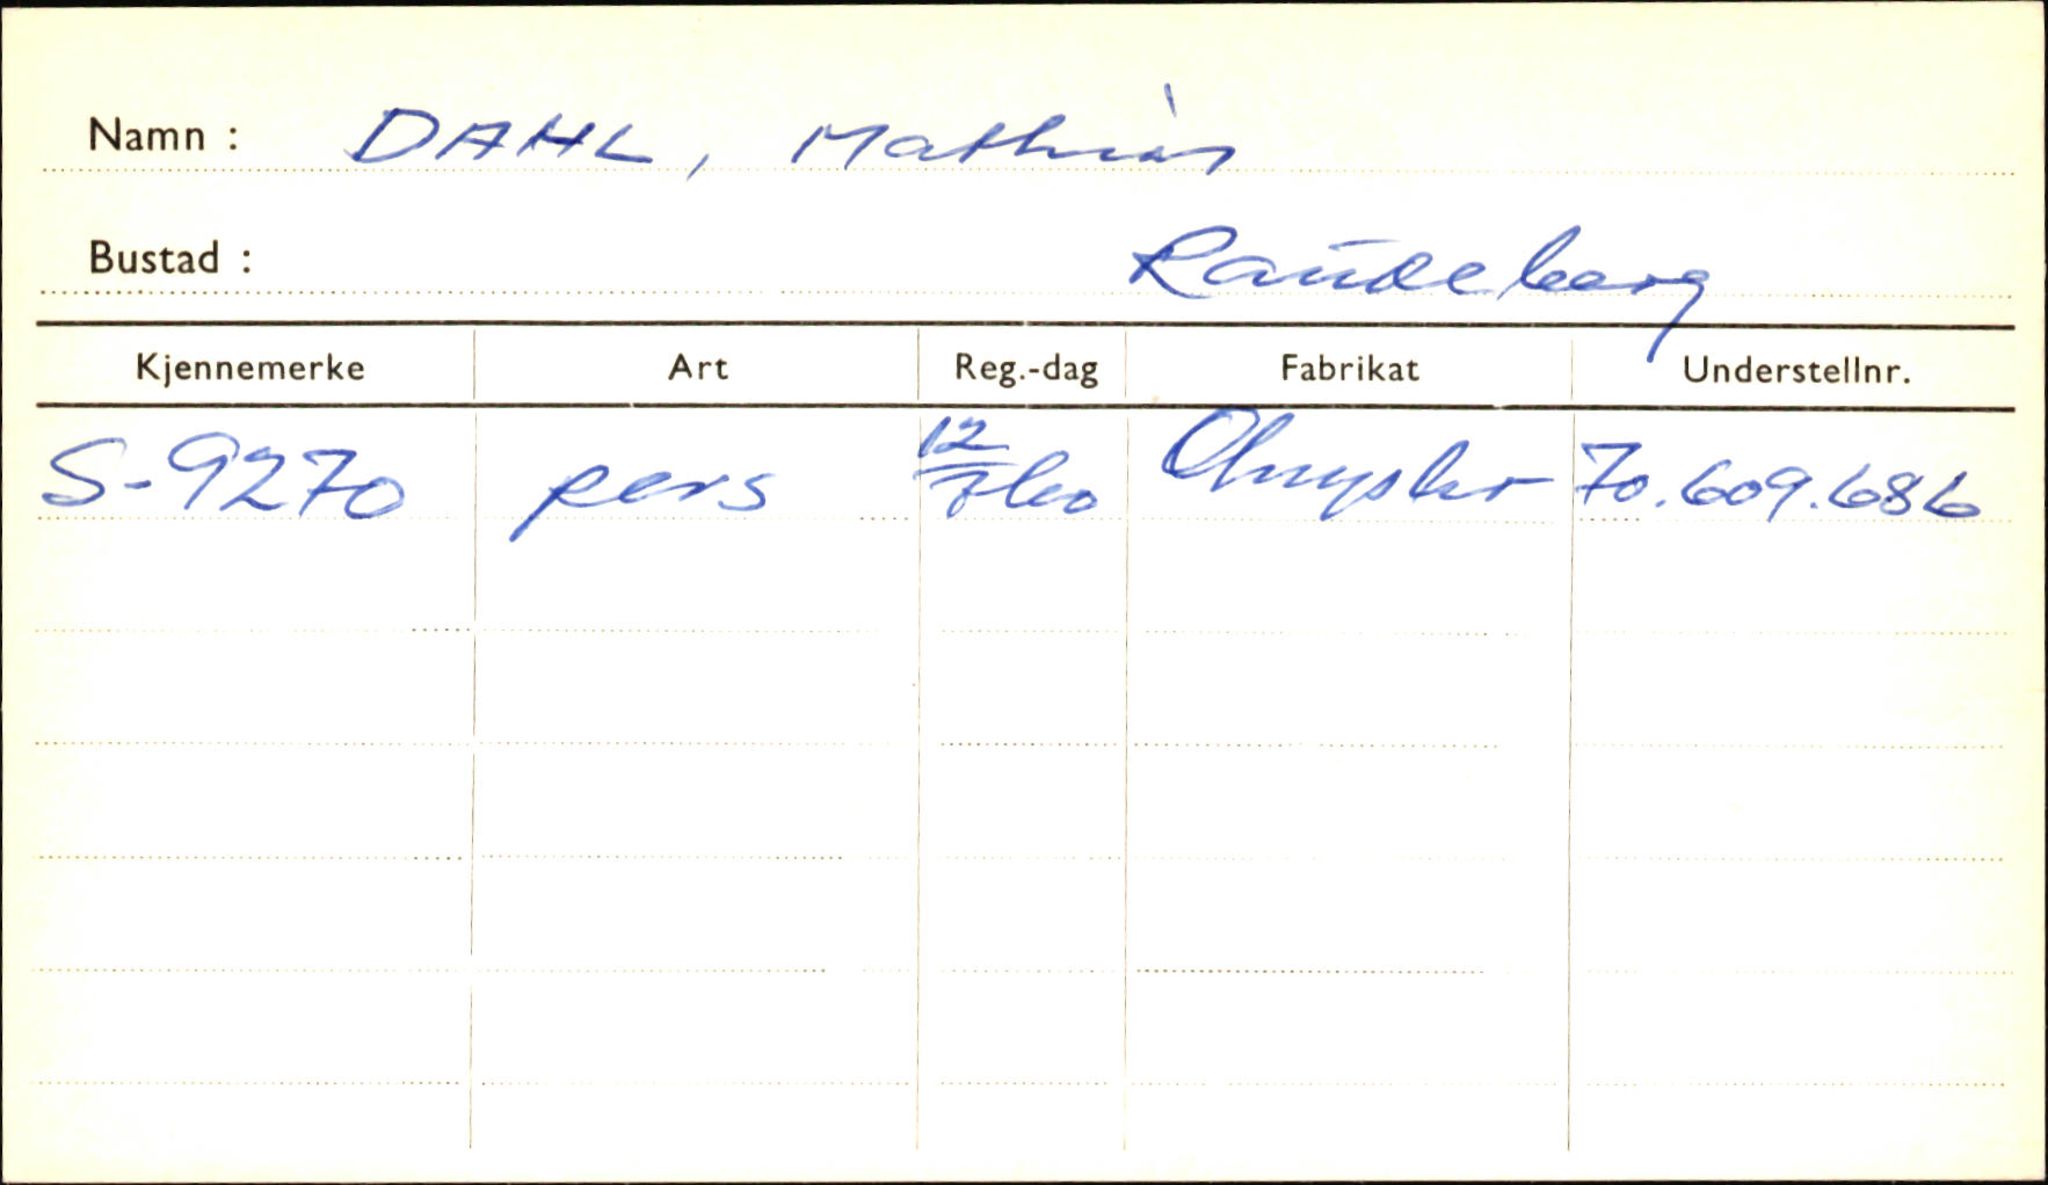 Namn : DAHL, Mathias
Bustad : Raudeberg
Kjennemerke Art Reg.-dag Fabrikat Understellnr.
S-9270 pers 12/7 60 Chrysler 70.609.686